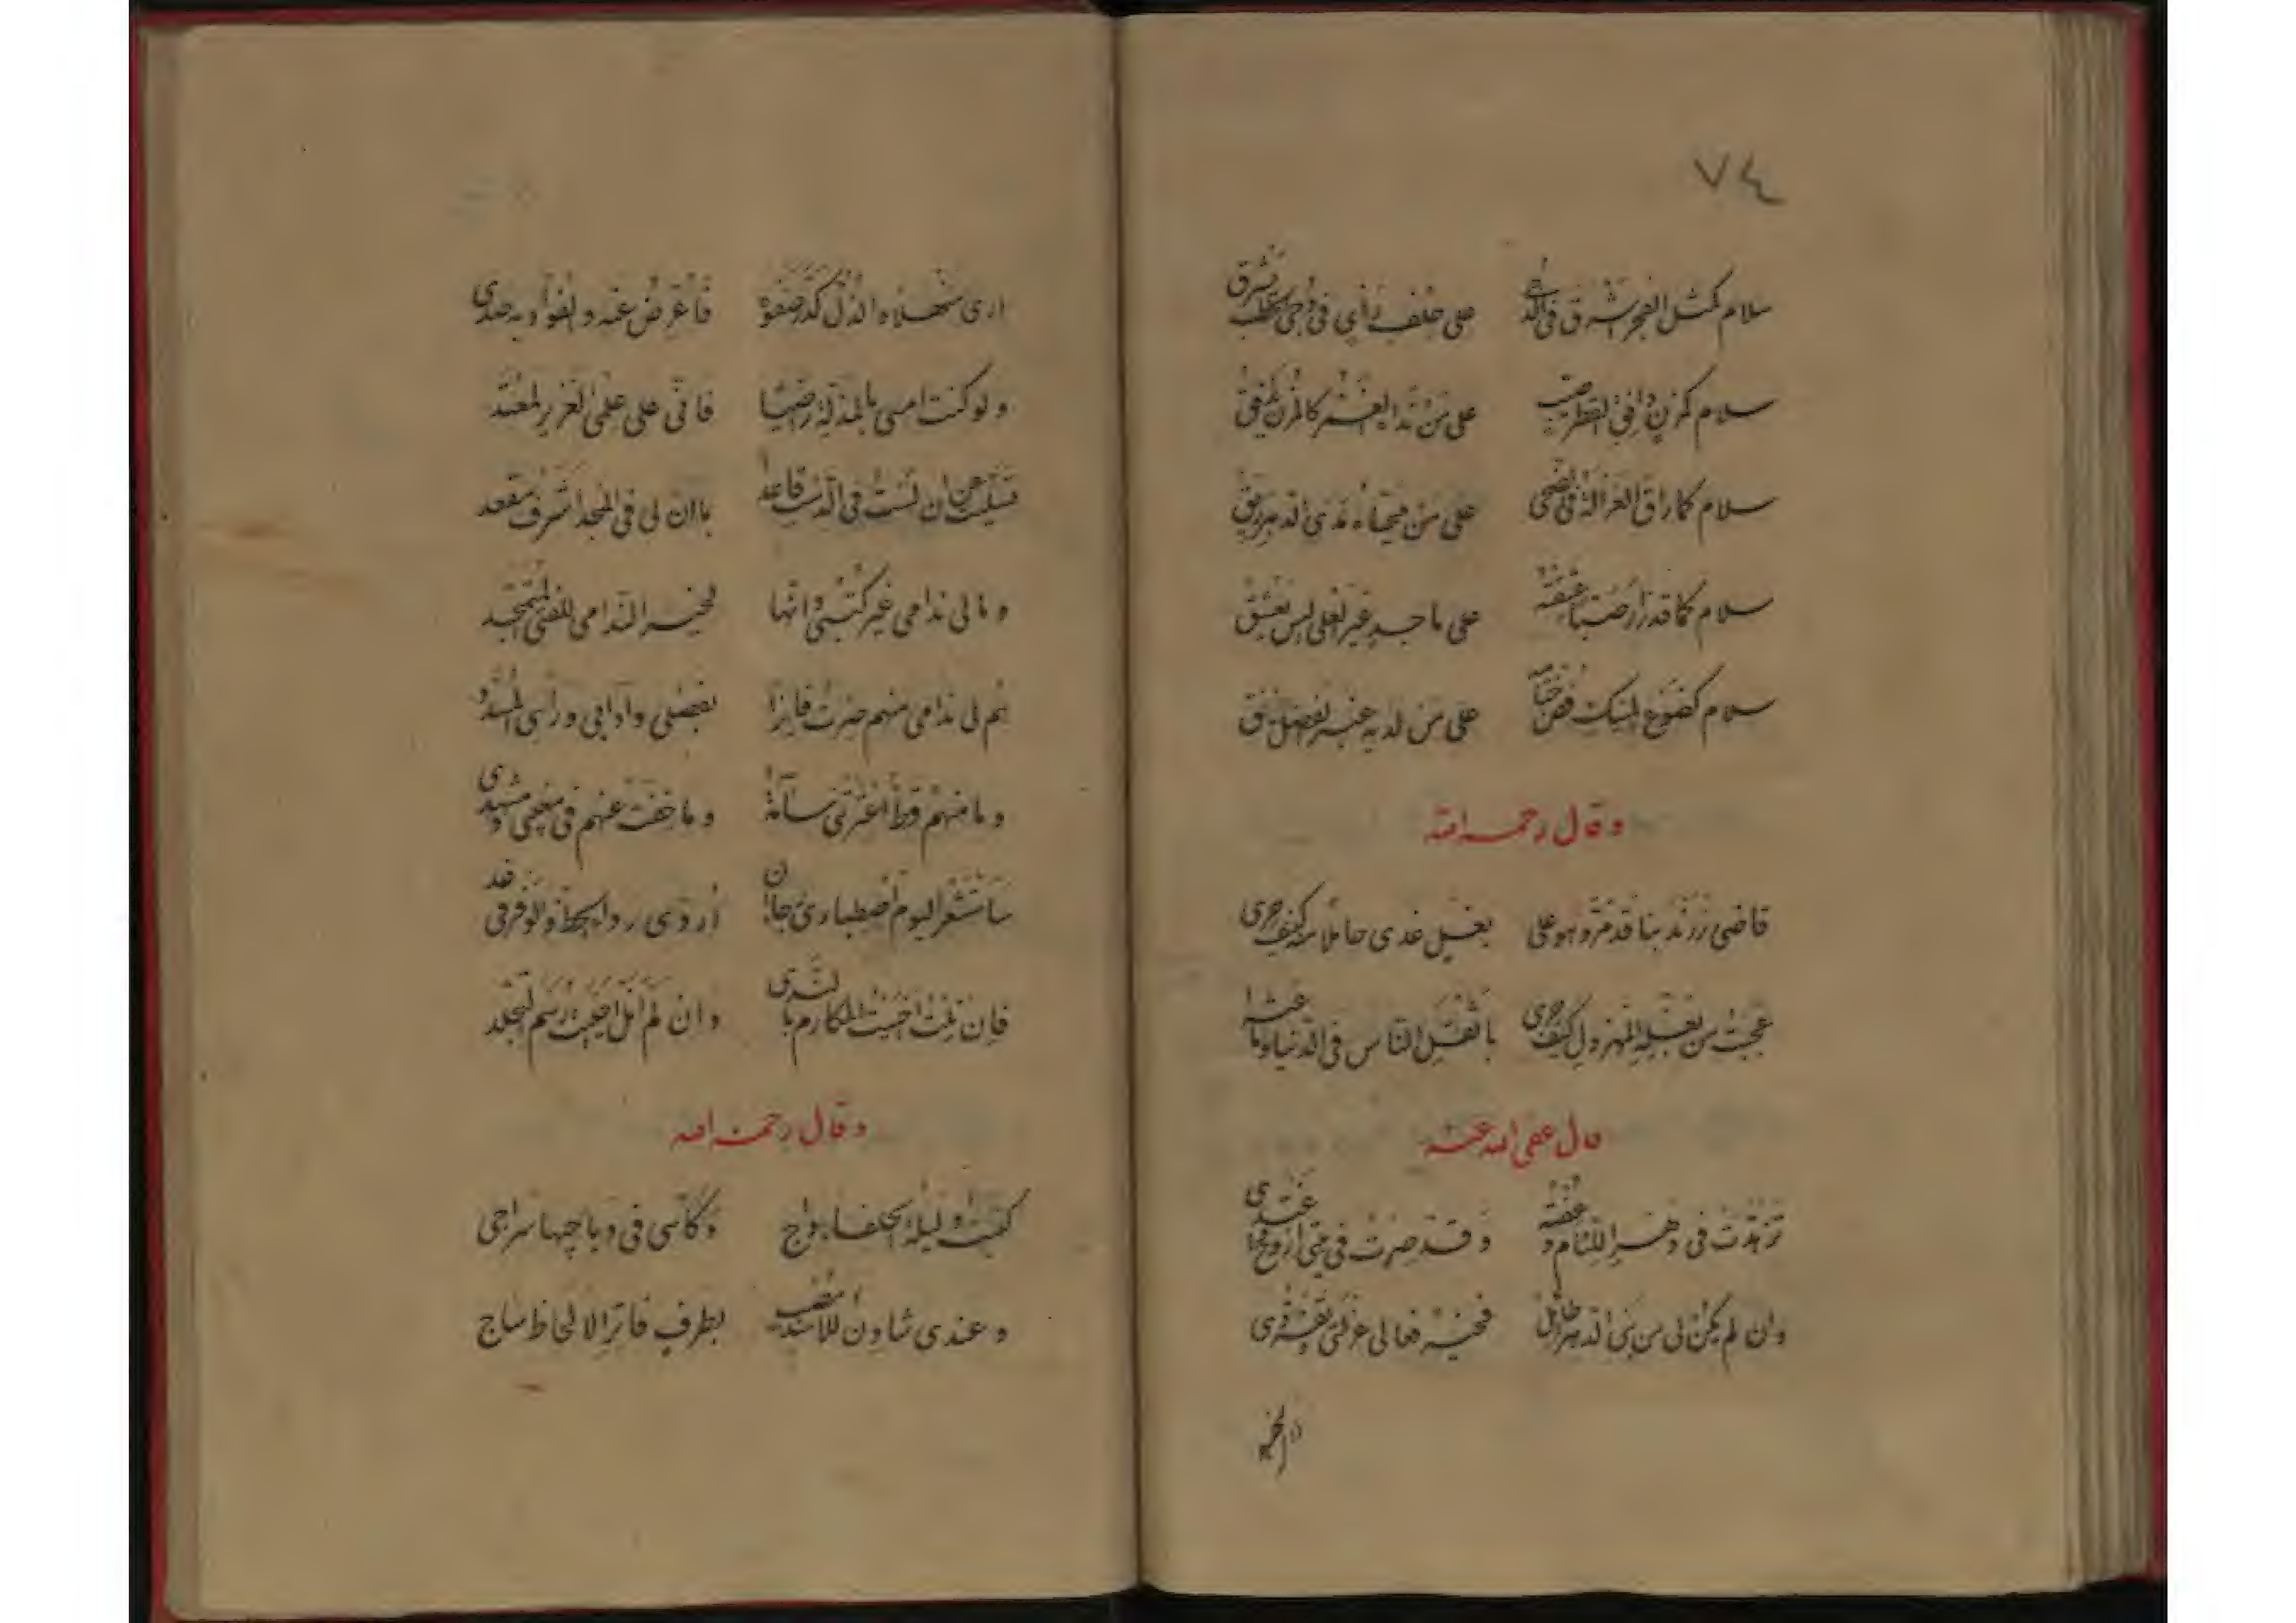 ٧٤
سلام كمثل الفجر اشرق في الدجى على خلف رأي في دجى الخطب مشرق
سلام كمزن وافق القطر صيب على من ندا العشر كالمزن المغدق
سلام كما راق الغزالة في الضحى على من محياه مدى الدهر ريق
سلام كما قد زار صبا عشيقه على ماجد غير العلى ليس يعشق
سلام كضوع المسك فض ختامه على من لديه عنبر الفضل يعبق
وقال رحمه الله
قاضي زرند بنا قد مر وهو على بغيل غدى حاملا منه كيف جرى
عجبت من بغيله المهزول كيف جرى باثقل الناس في الدنيا وما عثرا
قال عفى الله عنه
تزهدت في دهر اللئام وعفته وقد صرت في بيتي اروح واغتدي
وان لم يكن لي من بني الدهر طائل فخير فعالي عزلتي وتفردي
ارى منهلا والذل كدر صفوه فاعرض عنه والفؤاد به صدي
ولو كنت امسى بالمذلة راضيا فاني على علمي العزيز لمعتد
فسليت عن ان لست في الدست قاعدا بان لي في المجد اشرف مقعد
وما لي ندامى غير كتبي وانها لخير الندامى للفتى المتمجد
نعم لي ندامى منهم صرت فايزا بفضلي وآدابي ورأيي المسدد
وما منهم قط اعترتني سآمة وما خفت عنهم في مغيبي ومشهدي
سأستشعر اليوم اصطباري وان جفا اردي رداء الحظ والوفر في غد
فان نلت احييت المكارم بالندى وان لم انل احييت رسم التجلد
وقال رحمه الله
كتبت وليلة الخلفاء داج وكأسي في دياجيها سراجي
وعندي شادن للاسد مصب بطرف فاتر الالحاظ ساج